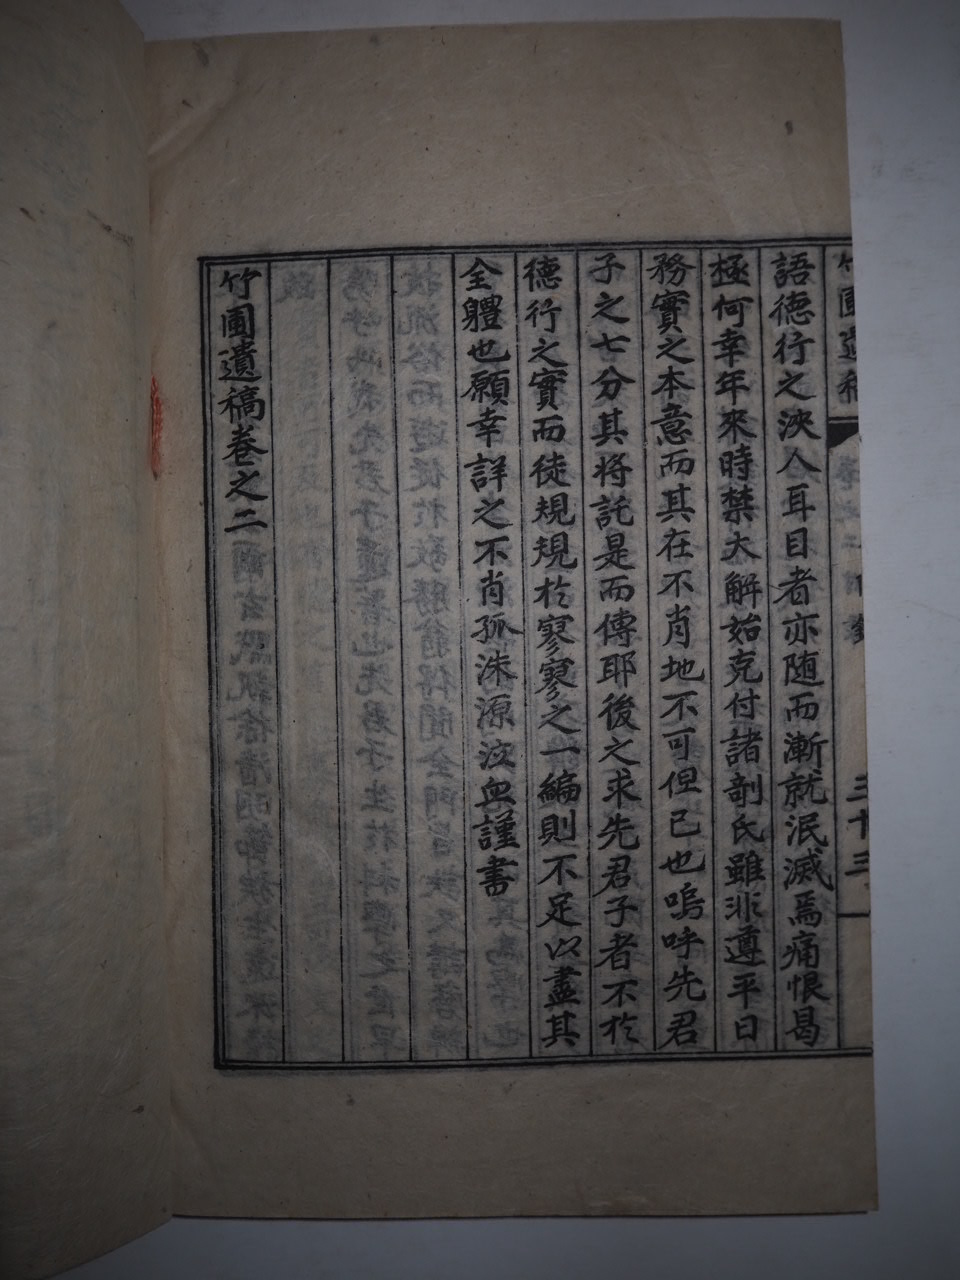 語德行之浹人耳目者亦随而漸就泯滅焉痛恨曷
極何幸年來時禁大解始克付諸剞氏雖非遵平日
務實之本意而其在不肖地不可但已也嗚呼先君
子之七分其将託是而傳耶後之求先君子者不於
德行之實而徒規規於寥寥之一編則不足以盡其
全軆也願幸詳之不肖孤洙源泣血謹書
竹圃遺稿卷之二